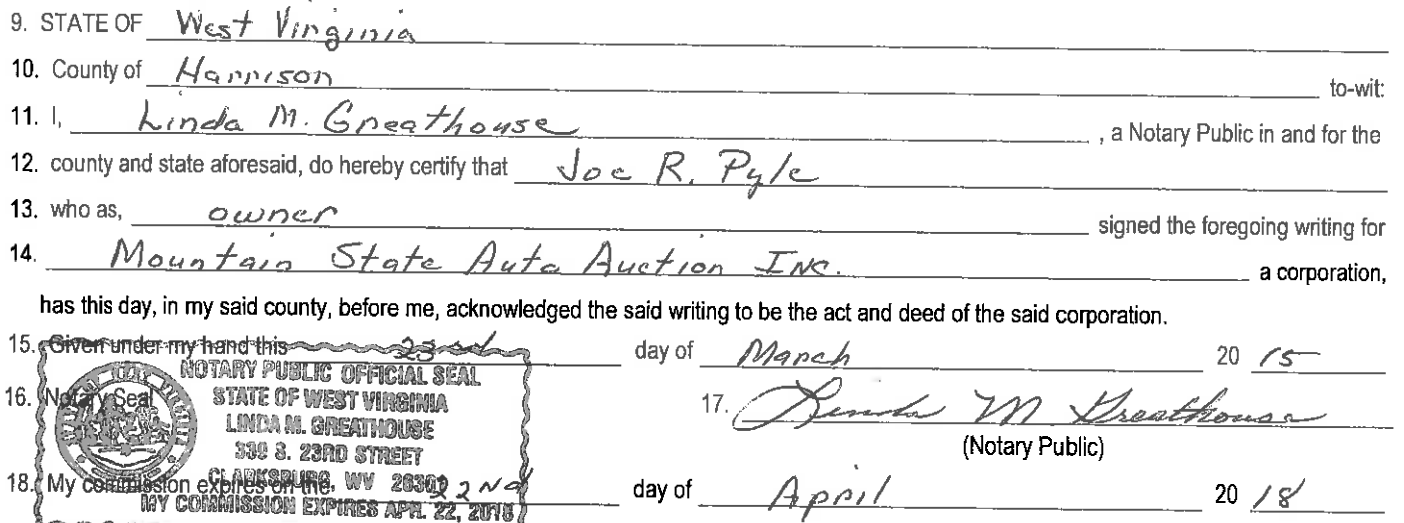 9. STATE OF West Virginia
10. County of Harrison to-wit:
11. I, Linda M. Greathouse , a Notary Public in and for the
12. county and state aforesaid, do hereby certify that Joe R. Pyle
13. who as, owner signed the foregoing writing for
14. Mountain State Auto Auction INC. a corporation,
has this day, in my said county, before me, acknowledged the said writing to be the act and deed of the said corporation.
15. Given under my hand this 23rd day of March 20 15
NOTARY PUBLIC OFFICIAL SEAL
16. Notary Seal STATE OF WEST VIRGINIA 17. Linda M Greathouse
LINDA M. GREATHOUSE
330 S. 23RD STREET (Notary Public)
CLARKSBURG, WV
18. My commission expires on the 22nd day of April 20 18
MY COMMISSION EXPIRES APR. 22, 2018